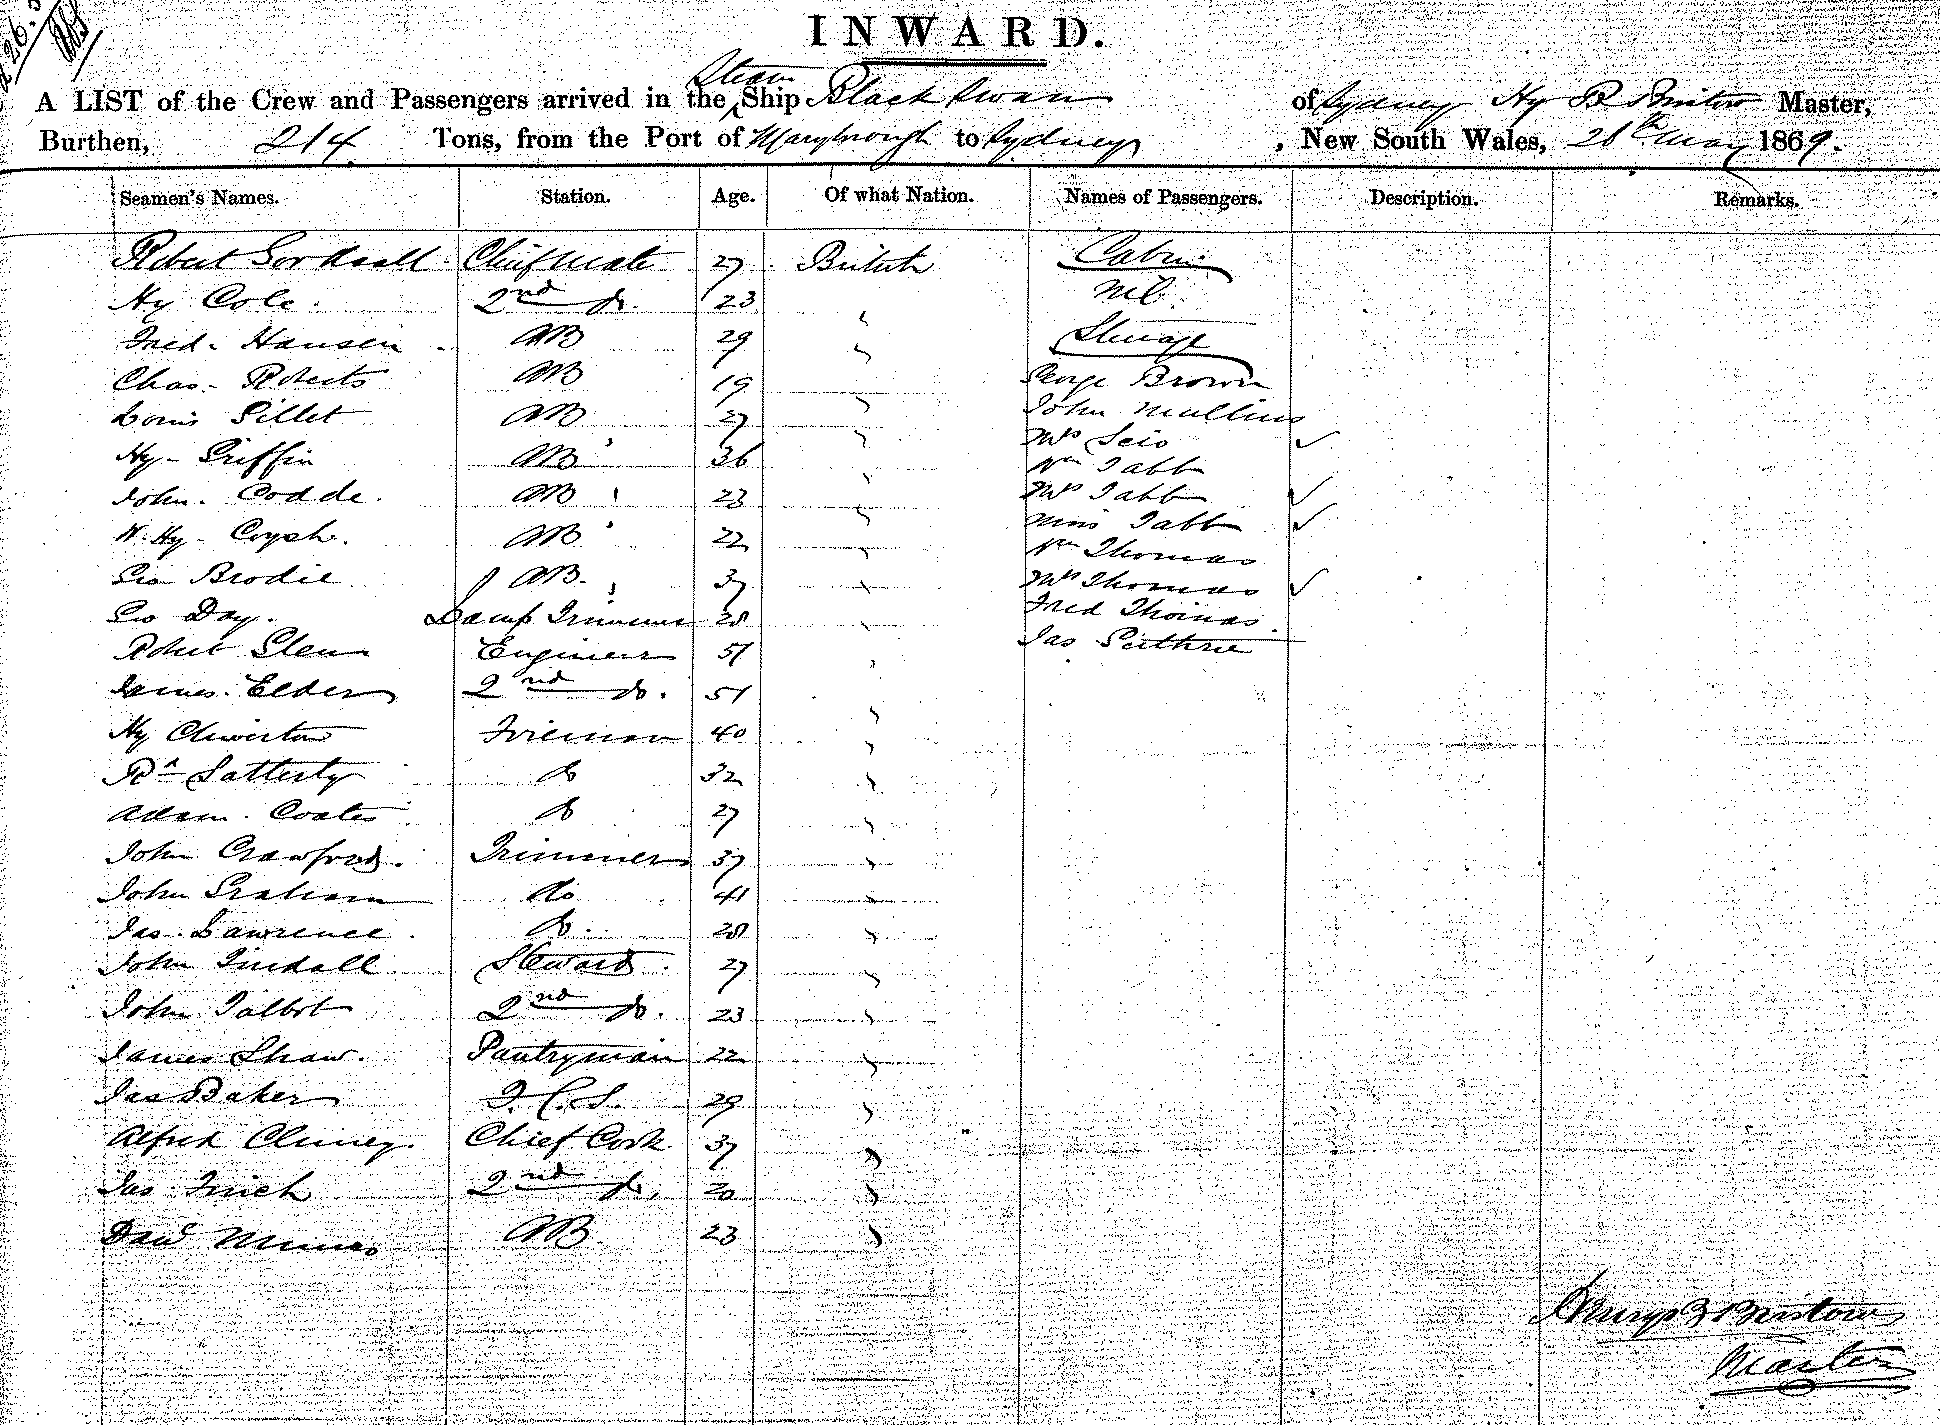 INWARD.
Steam
A LIST of the Crew and Passengers arrived in the Ship Black Swan of Sydney Hy B Bristow Master,
Burthen, 214 Tons, from the Port of Maryborough to Sydney, New South Wales, 28th May 1869.
Seamen's Names. Station. Age. Of what Nation. Names of Passengers. Description. Remarks.
Robert Chief Mate 27 British Cabin
Hy Cole. 2nd do. 23 Nil.
Fred. Hansen AB 29 Steerage
Chas. Roberts AB 19 George Brown
Louis Gillet AB 27 John Mullins
Hy Griffin AB 36 Mrs Geio
Wm Tabb
John Codde. AB 23 Mrs Tabb
W. Hy Coysh. AB 22 Miss Tabb
Wm Thomas
Geo Brodie AB. 37 Mrs Thomas
Geo Day. Lamp Trimmer 28 Fred Thomas.
Robert Glenn Engineer 51 Jas Guthrie
James Elder 2nd do. 51
Hy Chiverton Fireman 40
Rd Latterty do 32
Adam Coates do 27
John Crawford. Trimmer 37
John Graham do 41
Jas Lawrence do. 28
John Tindall Steward. 27
John Talbot 2nd do. 23
James Shaw. Pantryman 22
Jas Baker F. C. S. 29
Alfred Chief Cook 37
Jas Finch 2nd do, 20
Davd AB 23
Henry B Bristow
Master